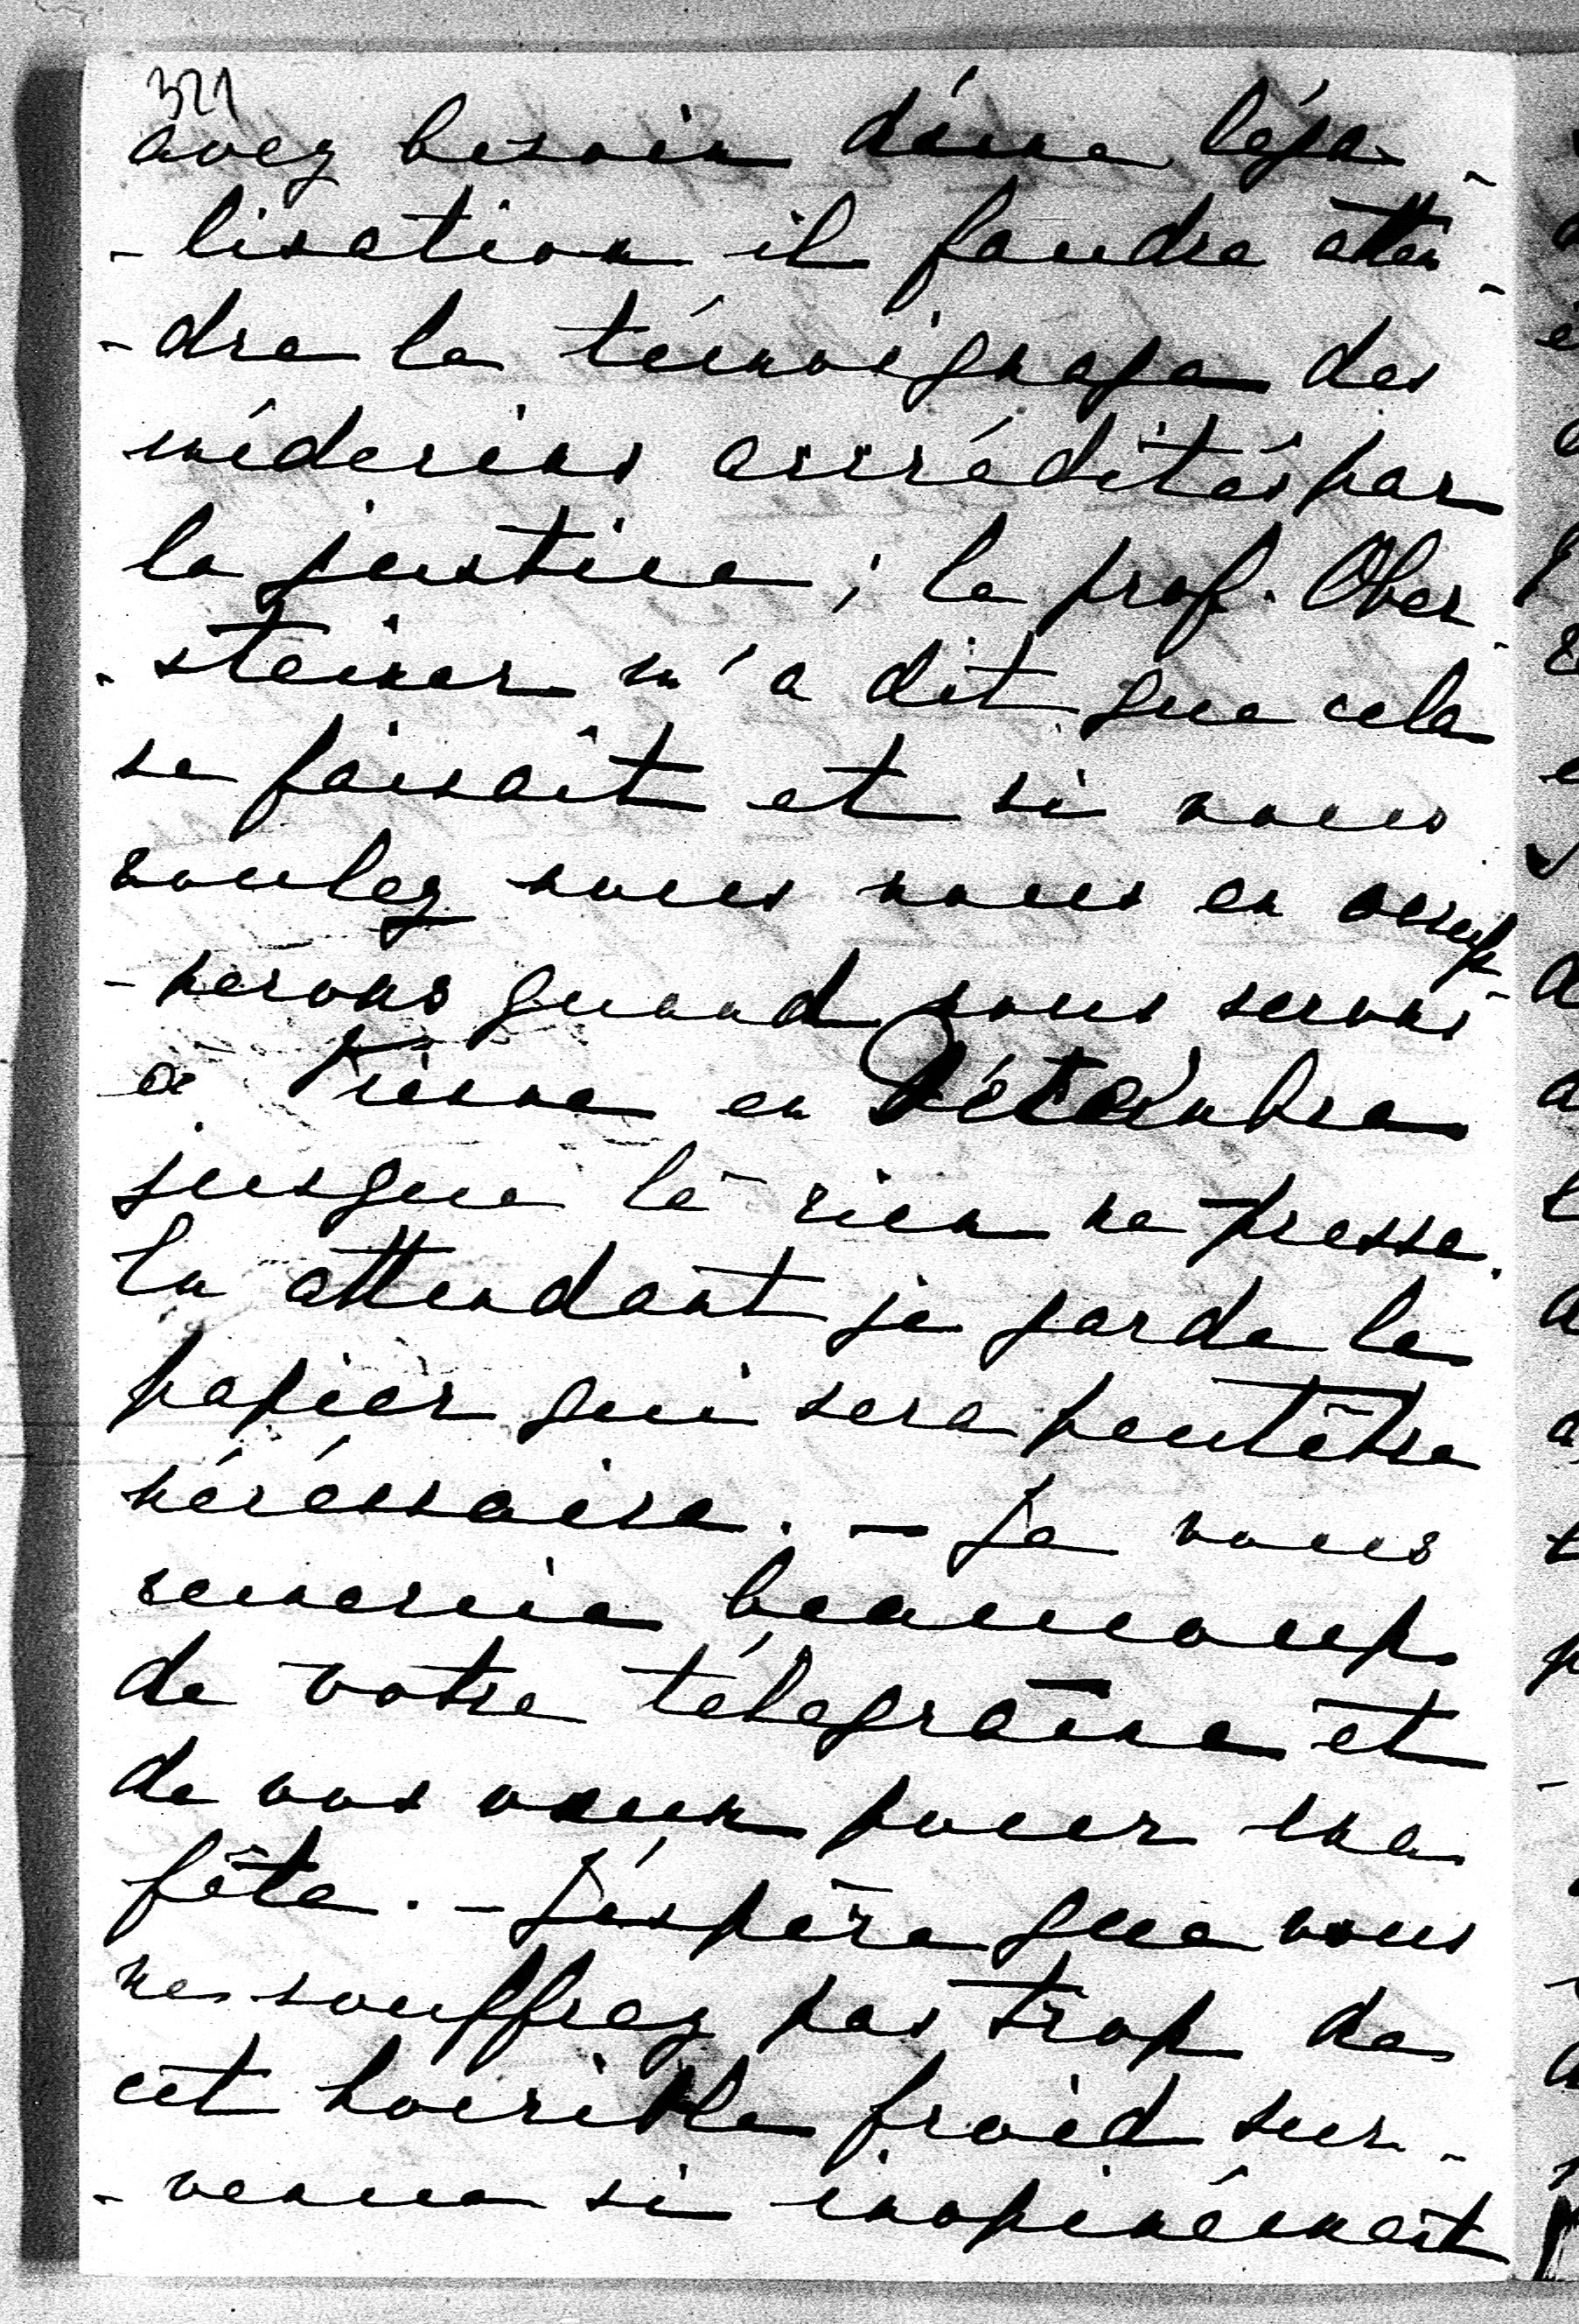 321
avez besoin d'une léga-
-lisation il faudra atten-
-dre le témoignage des
médecins accrédités par
la justice; le prof. Ober-
-steiner m'a dit que cela
se faisait et si vous
voulez nous nous en occup-
-perons quand nous serons
à Vienne en Décembre
jusque là rien ne presse.
En attendant je garde le
papier qui sera peutêtre
nécéssaire. - Je vous
remercie beaucoup
de votre télegrame et
de vos vœux pour ma
fête. - J'éspère que vous
ne souffrez pas trop de
cet horrible froid sur-
-venue si inopinément